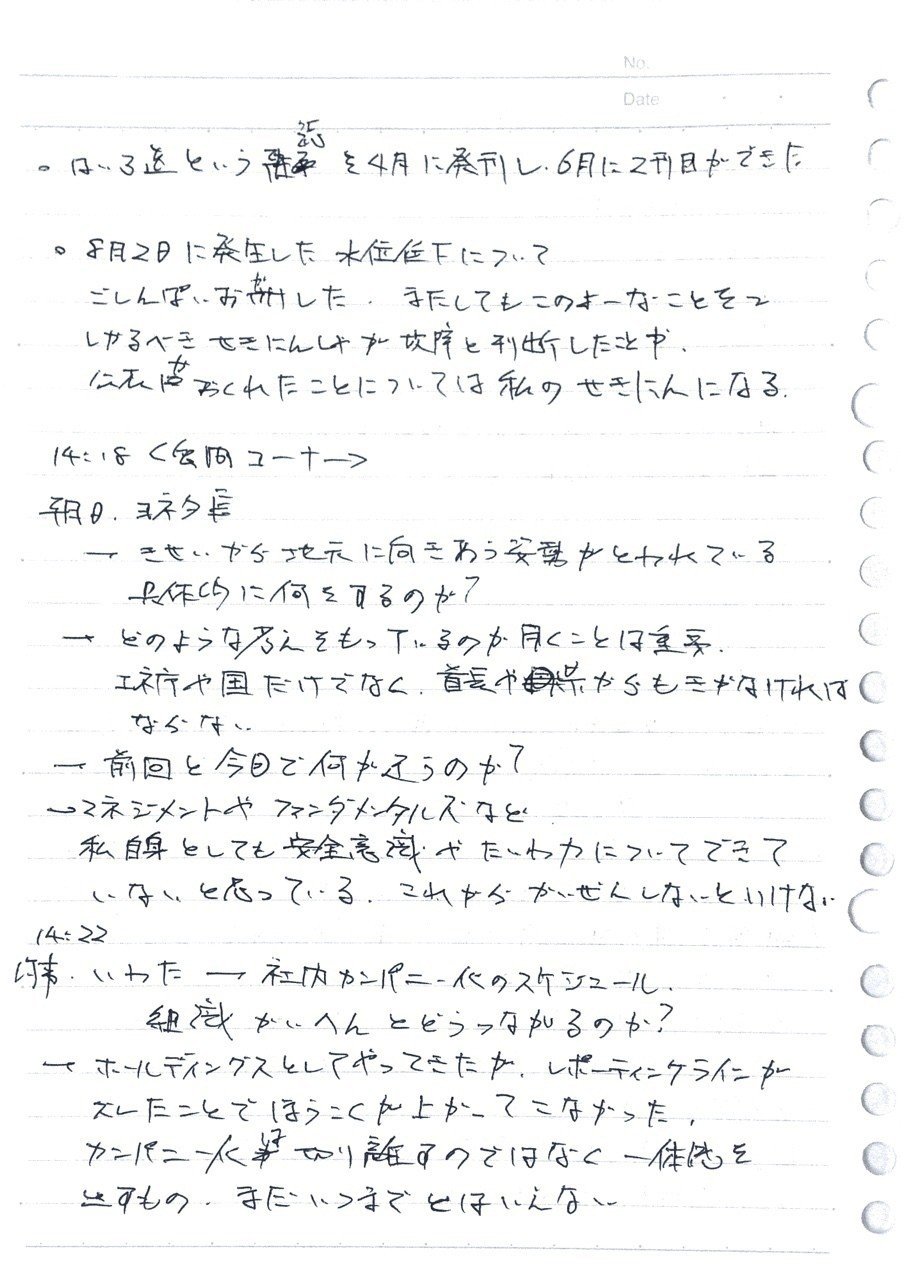 No.
Date
。はいろ道という 誌 を4月に発刊し、6月に2刊目ができた
。8月2日に発生した 水位低下について
ごしんぱいおかけした。またしてもこのよーなことをつ
しかるべき せきにんしゃが 故障と判断したことや、
公表が おくれたことについては 私の せきにんになる。
14:18 <会問コーナー>
朝日、ヨネタ長
→ きせいから 地元に向きあう姿勢がとわれている
具体的に何をするのか?
→ どのような考えをもっているのか 聞くことは重要。
エネ庁や国だけでなく、首長や県からもきかなければ
ならない
→ 前回と今回で何が违うのか?
→マネジメントや ファンダメンタルズなど
私自身としても 安全意識や たいわ力についてできて
いないと思っている。これから かいぜんしないといけない
14:22
時事. いわた → 社内カンパニー化のスケジュール、
組織 かいへんとどうつながるのか?
→ ホールディングスとしてやってきたが、レポーティングラインが
ズレたことで ほうこくが上がってこなかった、
カンパニー化は 切り離すのではなく 一体感を
出すもの、まだいつまでとはいえない